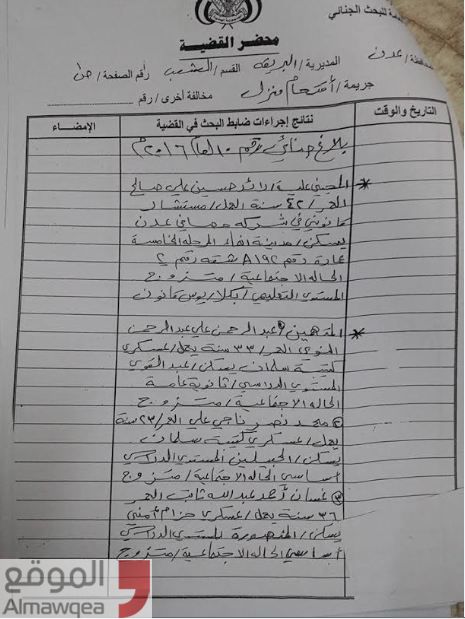 للبحث الجنائي
محضر القضية
محافظة/ عدن المديرية/ البريقه القسم/ الشعب رقم الصفحة/
جريمة/ اقتحام منزل مخالفة أخرى/ رقم
التاريخ والوقت نتائج إجراءات ضابط البحث في القضية الإمضاء
بلاغ جنائي رقم ١٠ لعام ٢٠١٦م
* المجني عليه/ لاثر حسين علي صالح
العمر/ ٤٢ سنة العمل/ مستشار
قانوني في شركة مصافي عدن
يسكن/ مدينة انماء المرحله الخامسة
عمارة رقم A١٩٢ شقه رقم ٢
الحاله الاجتماعية/ متزوج
المستوى التعليمي/ بكلاريوس قانون
* المتهمين ① عبدالرحمن علي عبدالرحمن
العمر/ ٣٣ سنة يعمل/ عسكري
كتيبة سلمان يسكن/ عبدالقوي
المستوى الدراسي/ ثانوية عامة
الحاله الاجتماعية/ متزوج
② محمد نصر ناجي علي العمر/ ٢٣ سنة
يعمل/ عسكري كتيبة سلمان
يسكن/ المستوى الدراسي
أساسي الحاله الاجتماعية/ متزوج
③ غسان أحمد عبدالله ثابت العمر
٣٦ سنة يعمل/ عسكري حزام أمني
يسكن/ المنصورة المستوى الدراسي
أساسي الحاله الاجتماعية/ متزوج
الموقع
Almawqea